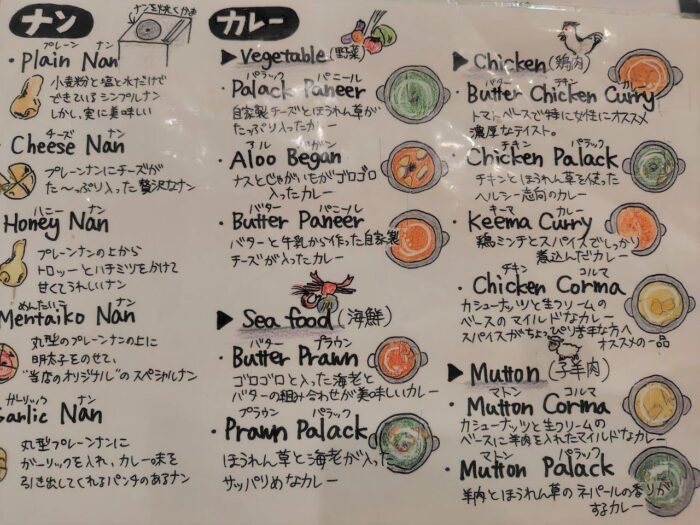 ナン
ナンを焼くかま
プレーン ナン
・Plain Nan
小麦粉と塩と水だけで
できているシンプルナン
しかし、実に美味しい
チーズ ナン
Cheese Nan
プレーンナンにチーズが
た〜っぷり入った贅沢なナン
ハニー ナン
Honey Nan
プレーンナンの上から
トロッーとハチミツをかけて
甘くてうれしいナン
めんたいこ ナン
Mentaiko Nan
丸型のプレーンナンの上に
明太子をのせて、
"当店のオリジナル"のスペシャルナン
ガーリック ナン
Garlic Nan
丸型プレーンナンに
ガーリックを入れ、カレー味を
引き出してくれるパンチのあるナン
カレー
▶Vegetable(野菜)
パラック パニール
・Palack Paneer
自家製チーズとほうれん草が
たっぷり入ったカレー
アル バガン
・Aloo Began
ナスとじゃがいもがゴロゴロ
入ったカレー
バター パニール
・Butter Paneer
バターと牛乳から作った自家製
チーズが入ったカレー
▶Sea food(海鮮)
バター プラウン
・Butter Prawn
ゴロゴロと入った海老と
バターの組み合わせが美味しいカレー
プラウン パラック
・Prawn Palack
ほうれん草と海老が入った
サッパリめなカレー
▶Chicken(鶏肉)
バター チキン カレー
・Butter Chicken Curry
トマトベースで特に女性にオススメ
濃厚なテイスト。
チキン パラック
・Chicken Palack
チキンとほうれん草を使った
ヘルシー志向のカレー
キーマ カレー
・Keema Curry
鶏ミンチとスパイスでしっかり
煮込んだカレー
チキン コルマ
・Chicken Corma
カシューナッツと生クリームの
ベースのマイルドなカレー
スパイスがちょっぴり苦手な方へ
オススメの一品
▶Mutton(子羊肉)
マトン コルマ
・Mutton Corma
カシューナッツと生クリームの
ベースに羊肉を入れたマイルドなカレー
マトン パラック
・Mutton Palack
羊肉とほうれん草のネパールの香りが
するカレー